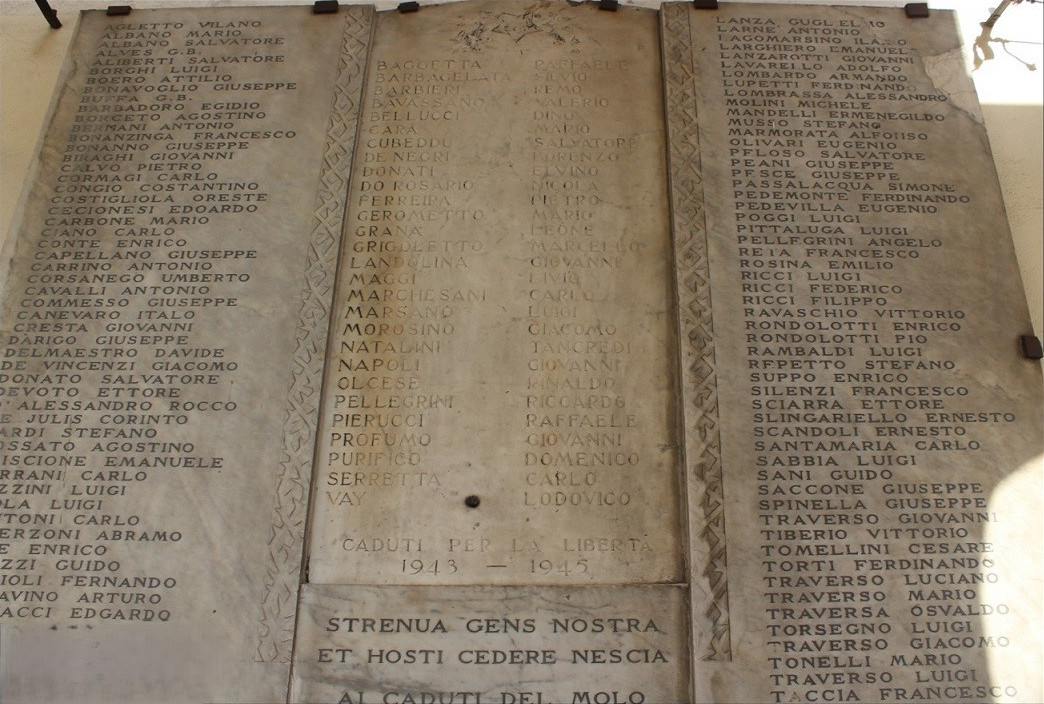 AGLETTO VILANO
ALBANO MARIO
ALBANO SALVATORE
ALVES G.B.
ALIBERTI SALVATORE
BORGHI LUIGI
BOERO ATTILIO
BONAVOGLIO GIUSEPPE
BUFFA G.B.
BARBADORO EGIDIO
BORCETO AGOSTINO
BERNANI ANTONIO
BONANZINGA FRANCESCO
BONANNO GIUSEPPE
BIRAGHI GIOVANNI
CALVO PIETRO
CORMAGI CARLO
CONGIO COSTANTINO
COSTIGLIOLA ORESTE
CECIONESI EDOARDO
CARBONE MARIO
CIANO CARLO
CONTE ENRICO
CAPELLANO GIUSEPPE
CARRINO ANTONIO
CORSANEGO UMBERTO
CAVALLI ANTONIO
COMMESSO GIUSEPPE
CANEVARO ITALO
CRESTA GIOVANNI
DARIGO GIUSEPPE
DELMAESTRO DAVIDE
DE VINCENZI GIACOMO
DONATO SALVATORE
DEVOTO ETTORE
D'ALESSANDRO ROCCO
E JULIS CORINTO
ARDI STEFANO
OSSATO AGOSTINO
ISCIONE EMANUELE
RRANI CARLO
ZZINI LUIGI
OLA LUIGI
TONI CARLO
ERZONI ABRAMO
E ENRICO
ZZI GUIDO
IOLI FERNANDO
AVINO ARTURO
ACCI EDGARDO
BAGGETTA RAFFAELE
BARBAGELATA SILVIO
BARBIERI REMO
BAVASSANO VALERIO
BELLUCCI DINO
CARÀ MARIO
CUBEDDU SALVATORE
DE NEGRI LORENZO
DONATI ELVINO
DO ROSARIO NICOLA
FERREIRA PIETRO
GEROMETTO MARIO
GRANA LEONE
GRIGOLETTO MARCELLO
LANDOLINA GIOVANNI
MAGGI LIVIO
MARCHESANI CARLO
MARSANO LUIGI
MOROSINO GIACOMO
NATALINI TANCREDI
NAPOLI GIOVANNI
OLCESE RINALDO
PELLEGRINI RICCARDO
PIERUCCI RAFFAELE
PROFUMO GIOVANNI
PURIFICO DOMENICO
SERRETTA CARLO
VAY LODOVICO
CADUTI PER LA LIBERTÀ
1943 — 1945
STRENUA GENS NOSTRA
ET HOSTI CEDERE NESCIA
AI CADUTI DEL MOLO
LANZA GUGLIELMO
LARNE' ANTONIO
LAGOMARSINO ILARIO
LARGHIERO EMANUEL
LANZAROTTI GIOVANNI
LAVARELLO ADOLFO
LOMBARDO ARMANDO
LUPETTI FERDINANDO
LOMBRASSA ALESSANDRO
MOLINI MICHELE
MANDELLI ERMENEGILDO
MUSSO STEFANO
MARMORATA ALFONSO
OLIVARI EUGENIO
PELOSO SALVATORE
PEANI GIUSEPPE
PESCE GIUSEPPE
PASSALACQUA SIMONE
PEDEMONTE FERDINANDO
PEDEVILLA EUGENIO
POGGI LUIGI
PITTALUGA LUIGI
PELLEGRINI ANGELO
RETA FRANCESCO
ROSINA EMILIO
RICCI LUIGI
RICCI FEDERICO
RICCI FILIPPO
RAVASCHIO VITTORIO
RONDOLOTTI ENRICO
RONDOLOTTI PIO
RAMBALDI LUIGI
REPETTO STEFANO
SUPPO ENRICO
SILENZI FRANCESCO
SCIARRA ETTORE
SLINGARIELLO ERNESTO
SCANDOLI ERNESTO
SANTAMARIA CARLO
SABBIA LUIGI
SANI GUIDO
SACCONE GIUSEPPE
SPINELLA GIUSEPPE
TRAVERSO GIOVANNI
TIBERIO VITTORIO
TOMELLINI CESARE
TORTI FERDINANDO
TRAVERSO LUCIANO
TRAVERSO MARIO
TRAVERSA OSVALDO
TORSEGNO LUIGI
TRAVERSO GIACOMO
TONELLI MARIO
TRAVERSO LUIGI
TACCIA FRANCESCO